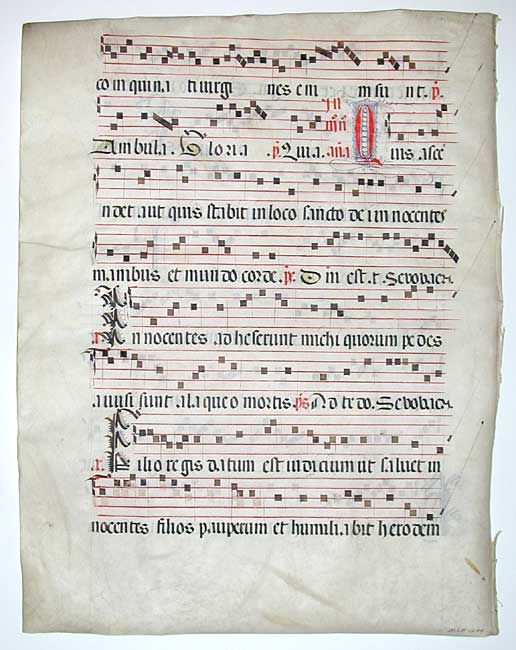 co in quina ti virgi nes eni m sunt. p̃.
Ambula. Gloria. p̃. Quia. aña Q uis asce
n det aut quis stabit in loco sancto dei innocentes
manibus et mun do corde. ps. D ni est. t. Seuouae.
I n nocentes adheserunt michi quorum pe des
a uisi sunt a la queo mortis. ps Ad te do. Seuouae.
F ilio re gis datum est iudicium ut saluet in
nocentes filios pauperum et humiliabit herodem